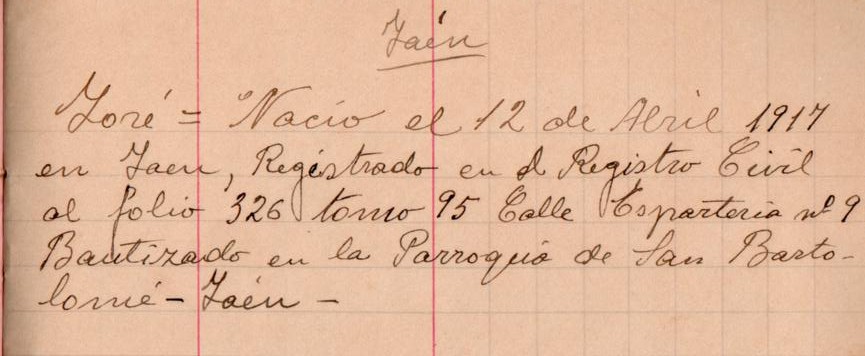 Jaén
José = Nacio el 12 de Abril 1917
en Jaen, Registrado en el Registro Civil
al folio 326 tomo 95 Calle Esparteria nº 9
Bautizado en la Parroquia de San Barto-
lomé - Jaén -